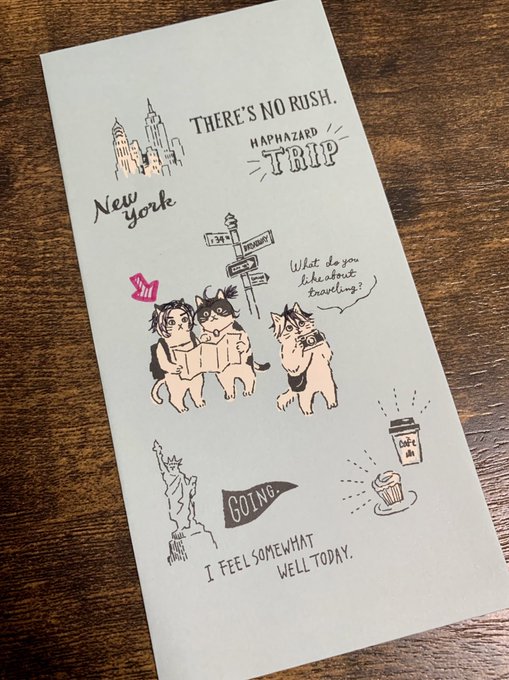 THERE'S NO RUSH.
HAPHAZARD
TRIP
New
York
34
BROADWAY
What do you
like about
traveling?
Cafe
GOING.
I FEEL SOMEWHAT
WELL TODAY.